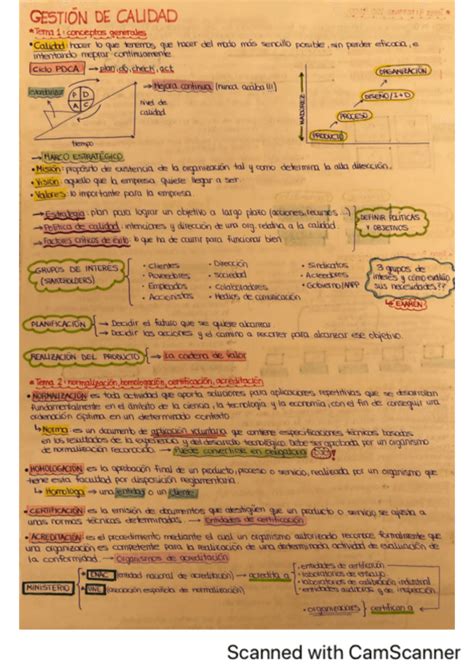 GESTIÓN DE CALIDAD
* Tema 1: conceptos generales
• Calidad: hacer lo que tenemos que hacer del modo más sencillo posible, sin perder eficacia, e
intentando mejorar continuamente.
Ciclo PDCA → plan, do, check, act
estandarizar
P D
A C
→ Mejora continua (nunca acaba!!!)
nivel de
calidad
tiempo
MADUREZ
ORGANIZACIÓN
DISEÑO/I+D
PROCESO
PRODUCTO
→ MARCO ESTRATÉGICO
• Misión: propósito de existencia de la organización tal y como determina la alta dirección.
• Visión: aquello que la empresa quiere llegar a ser.
• Valores: lo importante para la empresa.
→ Estrategia: plan para lograr un objetivo a largo plazo (acciones, recursos...)
→ Política de calidad: intenciones y dirección de una org. relativa a la calidad.
→ Factores críticos de éxito: lo que ha de ocurrir para funcionar bien
DEFINIR POLÍTICAS
Y OBJETIVOS
GRUPOS DE INTERÉS
(STAKEHOLDERS)
• Clientes
• Proveedores
• Empleados
• Accionistas
• Dirección
• Sociedad
• Colaboradores
• Medios de comunicación
• Sindicatos
• Acreedores
• Gobierno/AAPP
3 grupos de
interés y cómo evalúo
sus necesidades??
EXAMEN
PLANIFICACIÓN
→ Decidir el futuro que se quiere alcanzar
→ Decidir las acciones y el camino a recorrer para alcanzar ese objetivo.
REALIZACIÓN DEL PRODUCTO → La cadena de valor
* Tema 2: normalización, homologación, certificación, acreditación
• NORMALIZACIÓN es toda actividad que aporta soluciones para aplicaciones repetitivas que se desarrollan
fundamentalmente en el ámbito de la ciencia, la tecnología y la economía, con el fin de conseguir una
ordenación óptima en un determinado contexto.
Norma: es un documento de aplicación voluntaria que contiene especificaciones técnicas basadas
en los resultados de la experiencia y del desarrollo tecnológico. Debe ser aprobada por un organismo
de normalización reconocido. → Puede convertirse en obligatoria
• HOMOLOGACIÓN es la aprobación final de un producto, proceso o servicio, realizada por un organismo que
tiene esta facultad por disposición reglamentaria.
Homologa → una entidad o un cliente
• CERTIFICACIÓN es la emisión de documentos que atestigüen que un producto o servicio se ajusta a
unas normas técnicas determinadas. → Entidades de certificación
• ACREDITACIÓN es el procedimiento mediante el cual un organismo autorizado reconoce formalmente que
una organización es competente para la realización de una determinada actividad de evaluación de
la conformidad. → Organismos de acreditación
MINISTERIO
• ENAC (entidad nacional de acreditación) → acredita a
• UNE (asociación española de normalización)
• entidades de certificación
• laboratorios de ensayo
• laboratorios de calibración industrial
• entidades auditoras y de inspección
• organizaciones
certifican a
Scanned with CamScanner